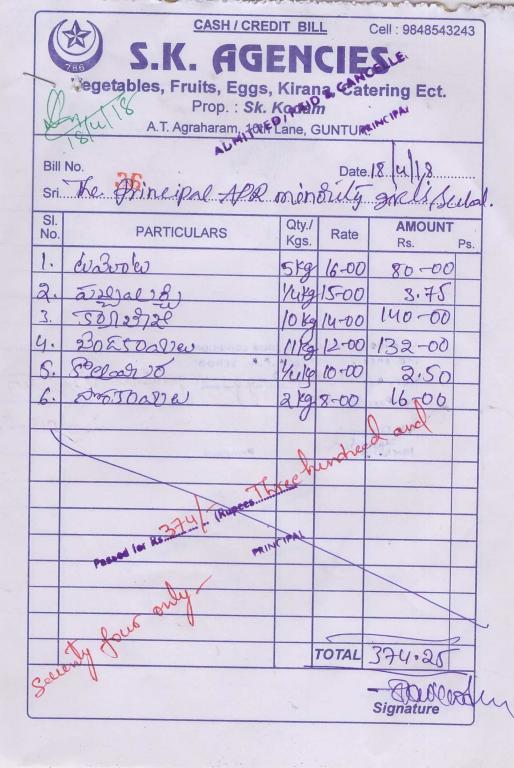 CASH / CREDIT BILL
Cell : 9848543243
786
S.K. AGENCIES
Vegetables, Fruits, Eggs, Kirana, Catering Ect.
Prop. : Sk. Karim
A.T. Agraharam, Lane, GUNTUR
ADMITTED, PAID & CANCELLE
PRINCIPAL
18/4/18
Bill No. 36
Date. 18/4/18
Sri. The Principal APR minority girls School.
Sl. No. PARTICULARS Qty./ Kgs. Rate AMOUNT Rs. Ps.
1. టమోటాలు 5kg 16-00 80-00
2. 1/4kg 15-00 3.75
3. 10kg 14-00 140-00
4. బెండకాయలు 11kg 12-00 132-00
5. 1/4kg 10-00 2.50
6. 2kg 8-00 16-00
Passed for Rs. 374/- (Rupees Three hundred and
PRINCIPAL
Seventy four only-
TOTAL 374.25
Signature